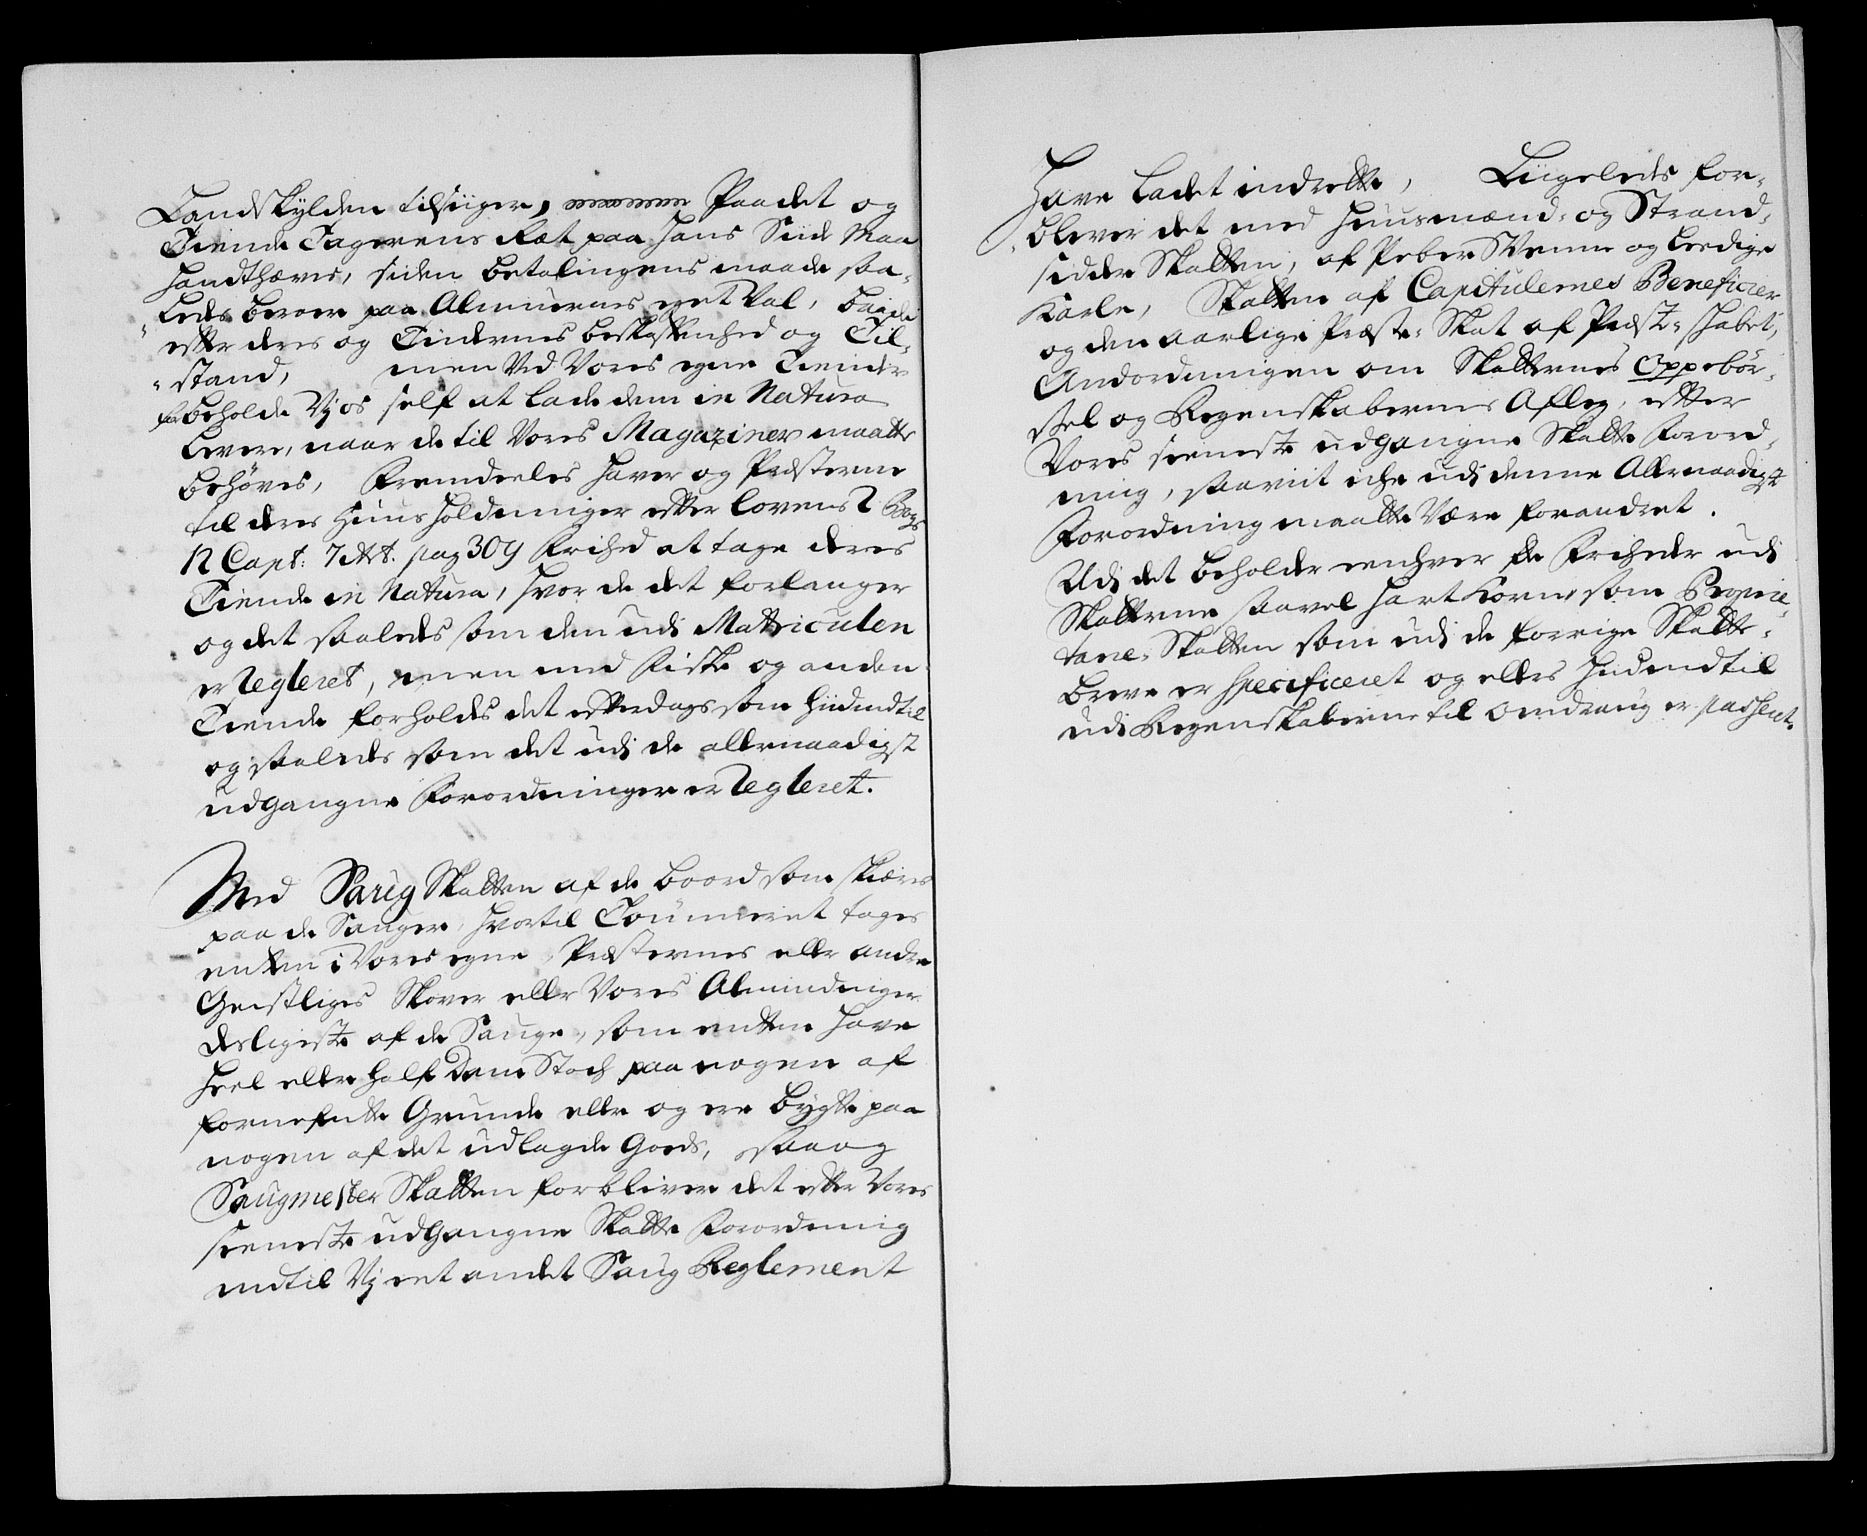 Landskylden tilsiiger, Paadet og
Tiende Tagerens Ræt paa hans Siide Maa
handthæves, siden betalingens maade saa-
ledes beroer paa Almuens eget Val, baade
efter deres og Tidernes beskaffenhed og Til-
stand, men Ved Vores egne Tiender
forbeholde Vj os self at lade dem in Natura
levere, naar de til Vores Magaziner maatte
behøves, Fremdeeles haver og Præsterne
til deres Huus holdninger efter Lovens 2 Bogs
12 Capt: 7 Art. pag 309 Frihed at tage deres
Tiende in Natura, hvor de det forlanger
og det saaledes som den udi Matriculen
er Regleret, men med Fiske og anden
Tiende forholdes det efterdags som hiidindtil
og saaledes som det udi de allernaadigst
udgangne Forordninger er Regleret.
Med Saug Skatten af de boord som skiæres
paa de Sauger, hvortil Tømmeret tages
enten i Vores egne, Præsternes eller andre
Geistliges Skover eller Vores Almindinger
desligeste af de Sauger, som enten have
heel eller half Dam Stoch paa nogen af
fornefnte Grunde eller og ere bygte paa
nogen af det udlagde Goeds, saa og
Saugmester Skatten forbliver det efter Vores
seeneste udgangne Skatte Forordning
indtil Vj eet andet Saug Reglement
have ladet indrette, Liigeleeds for-
bliver det med Huusmænd- og Strand-
sidder Skatten, af Peber Svenne og Leedige
Karle, Skatten af Capitulernes Beneficier
og den aarlige Præste-Skat af Præsteskabet,
Andordningen om Skatternes Oppebør-
sel og Regenskabernes Afleg, efter
Vores seeneste udgangne Skatte Forord-
ning, saavit iche udi denne Allernaadigste
Forordning maatte Være forandret.
Udi det beholder eenhver de Friheder udi
Skatterne saavel Hart Korns som Proprie-
tarie-Skatten som udi de forrige Skatte-
breve er specificeret og ellers hidindtil
udi Regenskaberne til Omdraug er passeert.